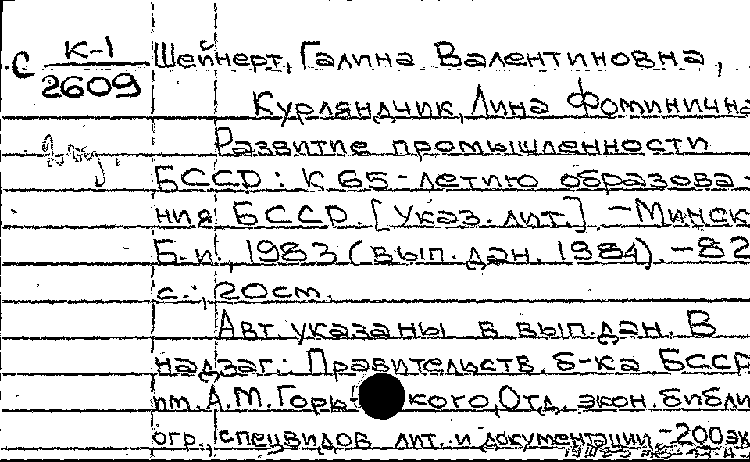 С К-1 Шейнерт, Галина Валентиновна,
2609
Курляндчик, Лина Фоминична
Развитие промышленности
БССР: К 65-летию образова-
ния БССР. [Указ. лит.]. - Минск
Б.и., 1983 (вып. дан. 1984). - 82
с.; 20 см.
Авт. указаны в вып. дан. В
надзаг.: Правительств. б-ка БССР
им. А.М. Горького, Отд. экон. библи
огр., спецвидов лит. и документации - 200 эк